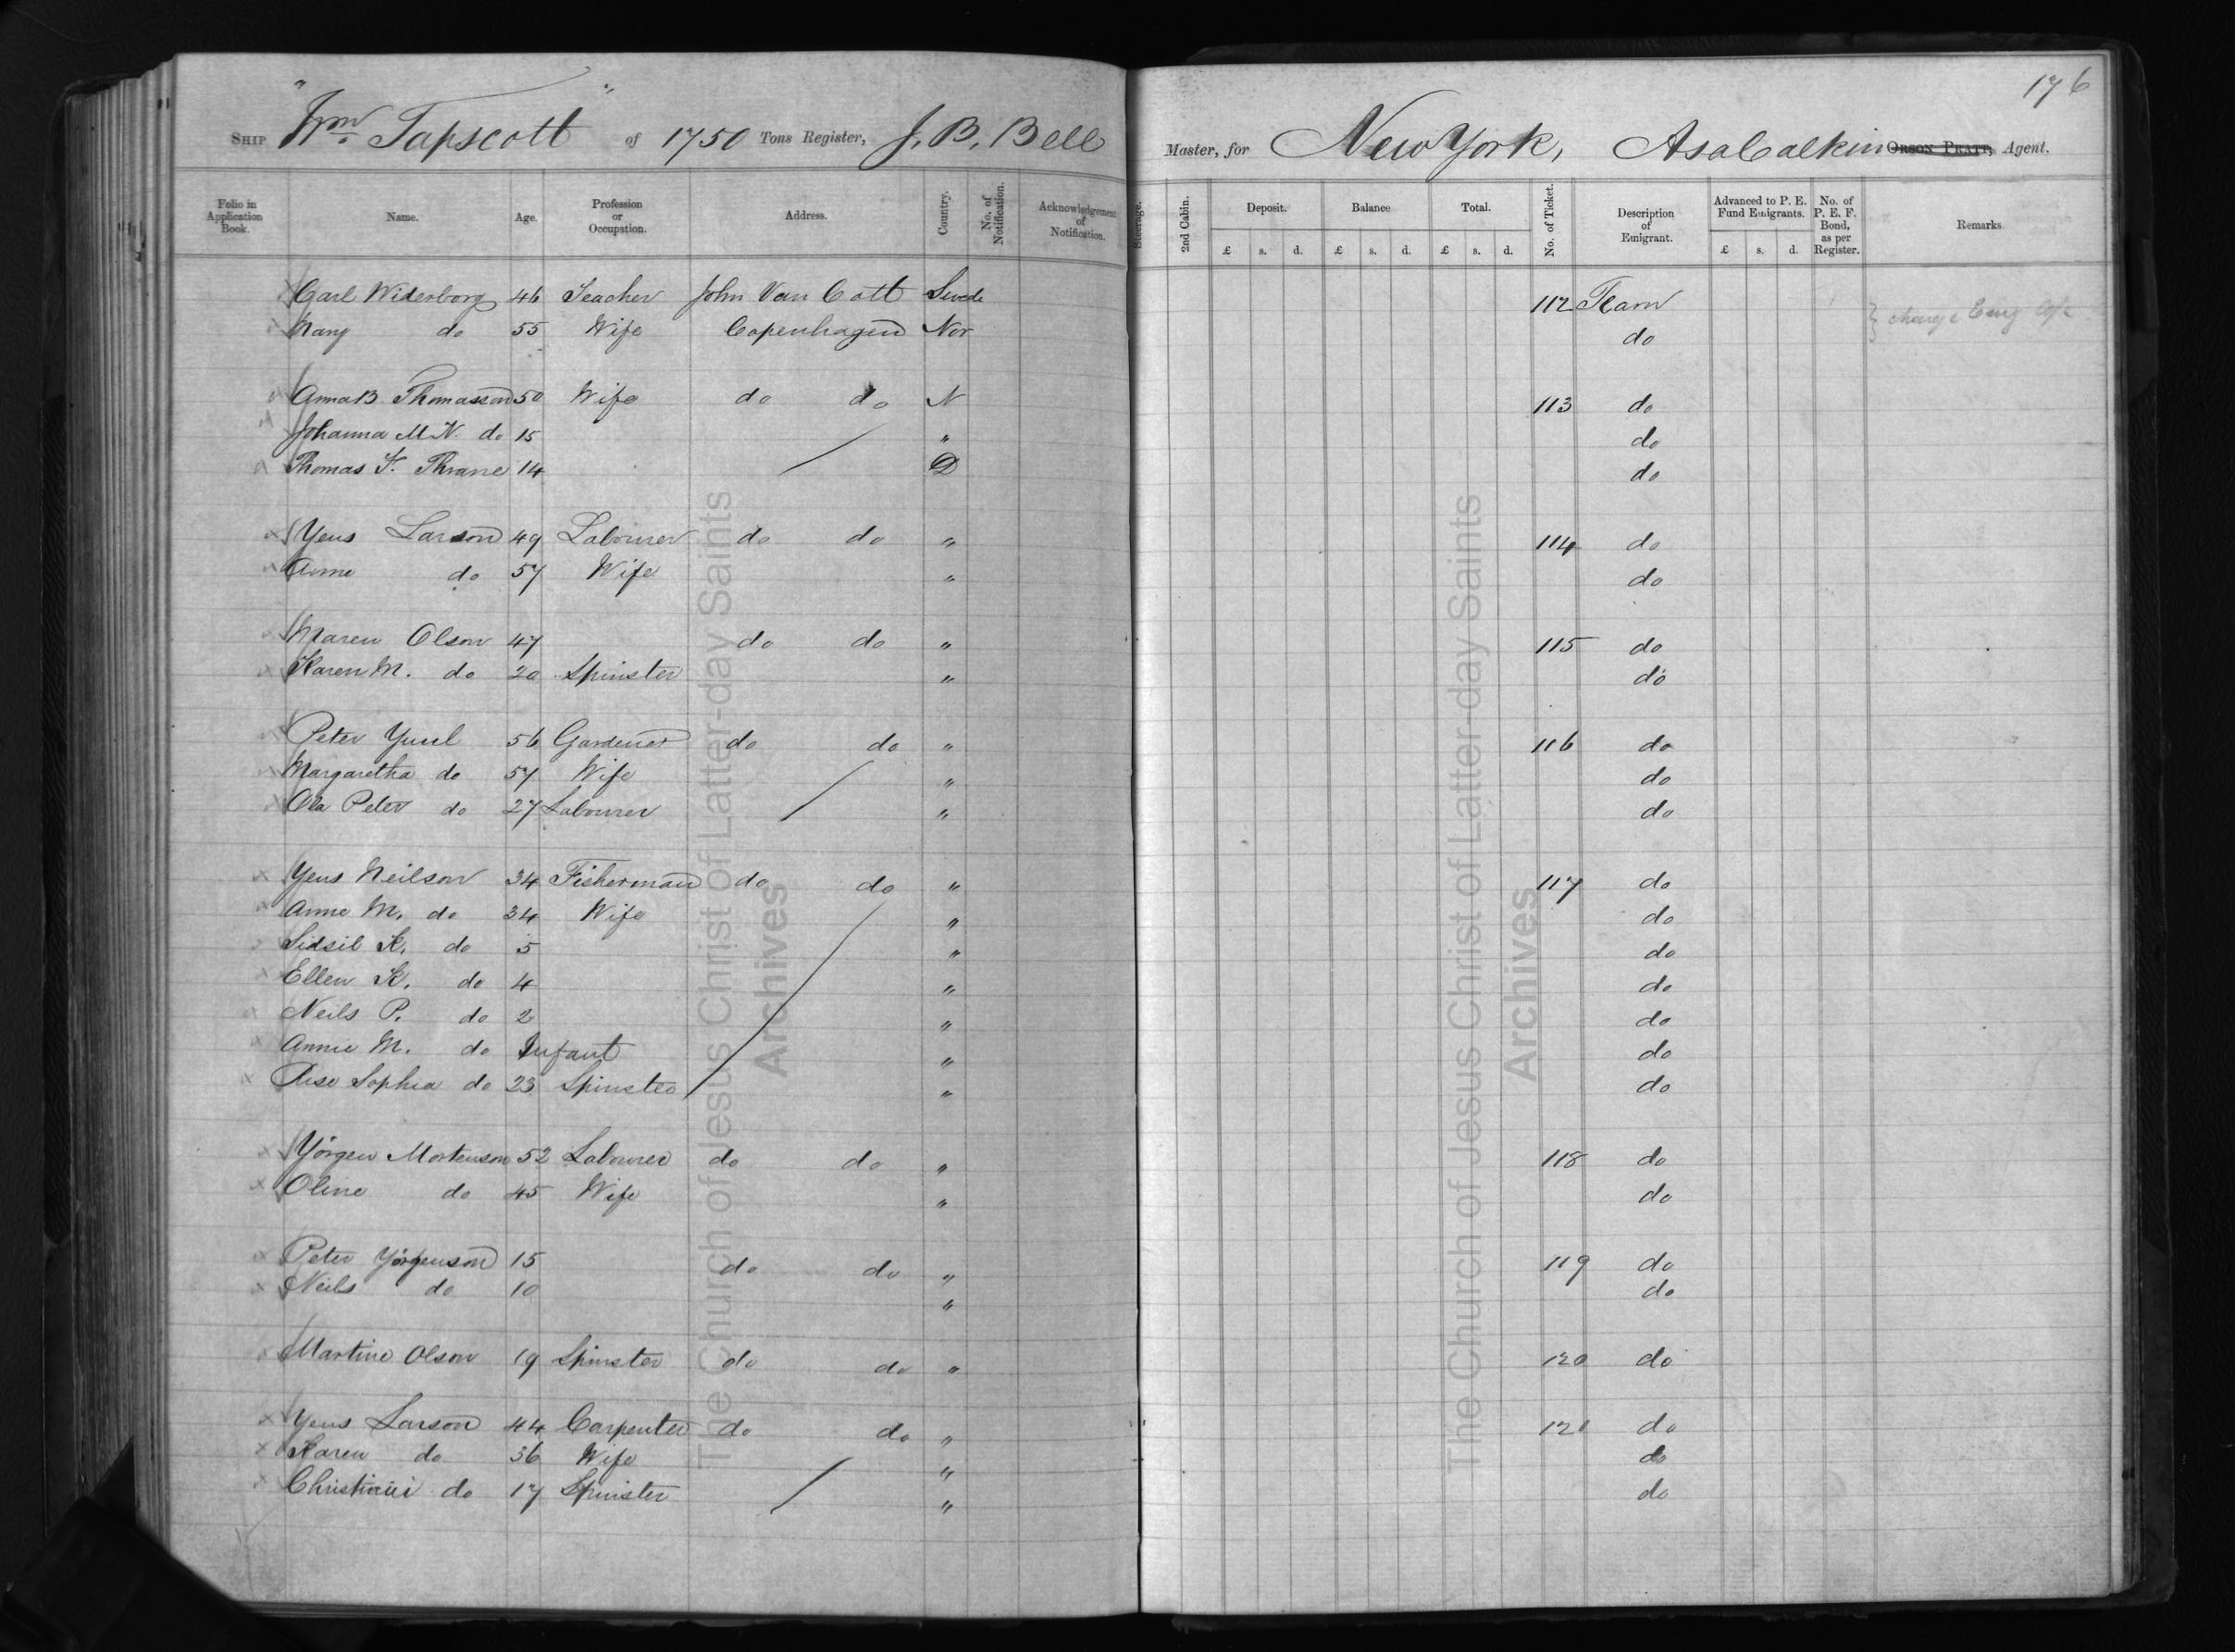 176
SHIP "Wm. Tapscott" of 1750 Tons Register, J. B. Bell Master, for New York, Asa Calkin ORSON PRATT, Agent.
Folio in Application Book. Name. Age. Profession or Occupation. Address. Country. No. of Notification. Acknowledgement of Notification. Steerage. 2nd Cabin. Deposit. Balance Total. No. of Ticket. Description of Emigrant. Advanced to P. E. Fund Emigrants. No. of P. E. F. Bond, as per Register. Remarks
£ s. d. £ s. d. £ s. d. £ s. d.
Carl Widerborg 46 Teacher John Van Cott Swede 112 Team
Mary do 55 Wife Copenhagen Nor do
} charge Emg
Anna B. Thomasson 50 Wife do do N 113 do
Johanna M. N. do 15 " do
Thomas F. Thrane 14 D do
Yens Larson 49 Labourer do do " 114 do
Anne do 57 Wife " do
Maren Olson 47 do do " 115 do
Karen M. do 20 Spinster " do
Peter Yuul 56 Gardener do do " 116 do
Margaretha do 57 Wife " do
Ola Peter do 27 Labourer " do
Yens Neilson 34 Fisherman do do " 117 do
Anne M. do 34 Wife " do
Sidsil K. do 5 " do
Ellen K. do 4 " do
Neils P. do 2 " do
Annie M. do Infant " do
Sophia do 23 Spinster " do
Yörgen Mortenson 52 Labourer do do " 118 do
Oline do 45 Wife " do
Peter Yörgenson 15 do do " 119 do
Neils do 10 " do
Martine Olson 19 Spinster do do " 120 do
Yens Larson 44 Carpenter do do " 121 do
Karen do 36 Wife " do
do 17 Spinster " do
The Church of Jesus Christ of Latter-day Saints
Archives
The Church of Jesus Christ of Latter-day Saints
Archives